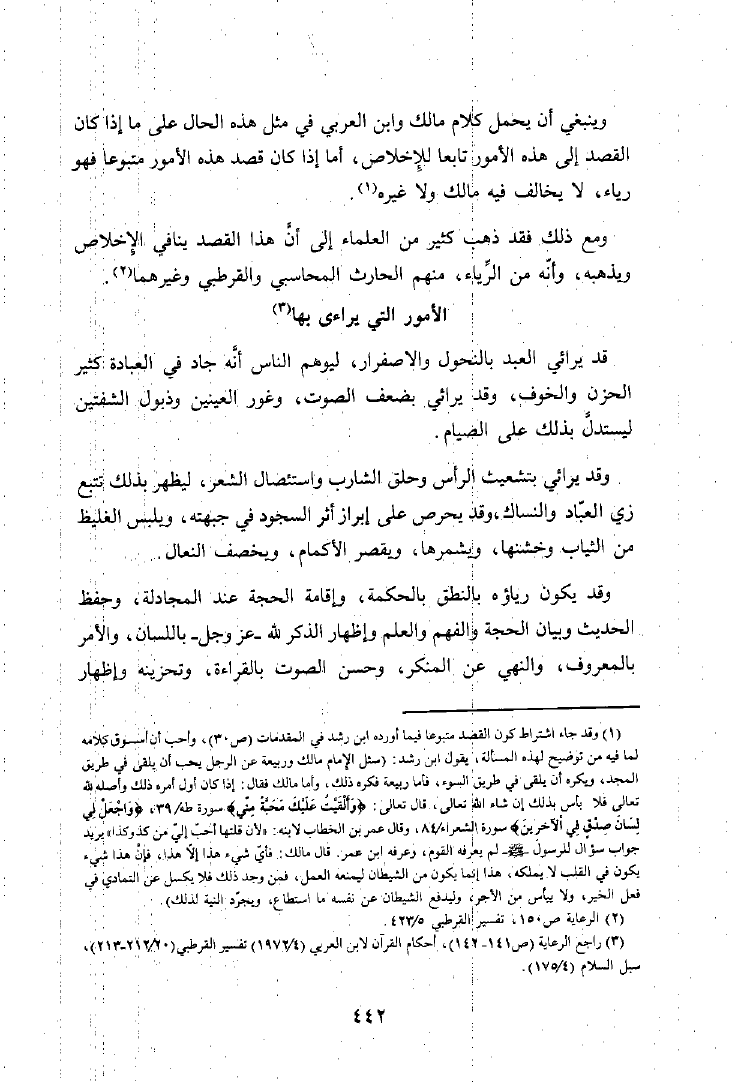 وينبغي أن يحمل كلام مالك وابن العربي في مثل هذه الحال على ما إذا كان
القصد إلى هذه الأمور تابعا للإخلاص، أما إذا كان قصد هذه الأمور متبوعا فهو
رياء، لا يخالف فيه مالك ولا غيره(١).
ومع ذلك فقد ذهب كثير من العلماء إلى أنَّ هذا القصد ينافي الإِخلاص
ويذهبه، وأنّه من الرِّياء، منهم الحارث المحاسبي والقرطبي وغيرهما(٢).
الأمور التي يراءى بها(٣)
قد يرائي العبد بالنحول والاصفرار، ليوهم الناس أنَّه جاد في العبادة كثير
الحزن والخوف، وقد يرائي بضعف الصوت، وغور العينين وذبول الشفتين
ليستدلَّ بذلك على الصيام.
وقد يرائي بتشعيث الرأس وحلق الشارب واستئصال الشعر، ليظهر بذلك تتبع
زي العبّاد والنساك،وقد يحرص على إبراز أثر السجود في جبهته، ويلبس الغليظ
من الثياب وخشنها، ويشمرها، ويقصر الأكمام، ويخصف النعال.
وقد يكون رياؤه بالنطق بالحكمة، وإقامة الحجة عند المجادلة، وحفظ
الحديث وبيان الحجة والفهم والعلم وإظهار الذكر لله ـعز وجل‍ـ باللسان، والأمر
بالمعروف، والنهي عن المنكر، وحسن الصوت بالقراءة، وتحزينه وإظهار
(١) وقد جاء اشتراط كون القصد متبوعا فيما أورده ابن رشد في المقدمات (ص٣٠)، وأحب أن أسوق كلامه
لما فيه من توضيح لهذه المسألة، يقول ابن رشد: (سئل الإمام مالك وربيعة عن الرجل يحب أن يلقى في طريق
المجد، ويكره أن يلقى في طريق السوء، فأما ربيعة فكره ذلك، وأما مالك فقال: إذا كان أول أمره ذلك وأصله لله
تعالى فلا يأس بذلك إن شاء الله تعالى، قال تعالى: ﴿وَأَلْقَيْتُ عَلَيْكَ مَحَبَّةً مِنِّي﴾ سورة طه/٣٩، ﴿وَاجْعَلْ لِي
لِسَانَ صِدْقٍ فِي الآخرِينَ﴾ سورة الشعراء/٨٤، وقال عمر بن الخطاب لابنه: «لأن قلتها أحبّ إليّ من كذوكذا» يريد
جواب سؤال للرسول ـﷺـ لم يعرفه القوم، وعرفه ابن عمر. قال مالك: فأيّ شيء هذا إلّا هذا، فإنّ هذا شيء
يكون في القلب لا يملكه، هذا إنما يكون من الشيطان ليمنعه العمل، فمن وجد ذلك فلا يكسل عن التمادي في
فعل الخير، ولا ييأس من الأجر، وليدفع الشيطان عن نفسه ما استطاع، ويجرّد النية لذلك).
(٢) الرعاية ص١٥٠، تفسير القرطبي ٤٢٣/٥.
(٣) راجع الرعاية (ص١٤١-١٤٢)، أحكام القرآن لابن العربي (١٩٧٢/٤) تفسير القرطبي(٢١٢/٢٠-٢١٣)،
سبل السلام (١٧٥/٤).
٤٤٢